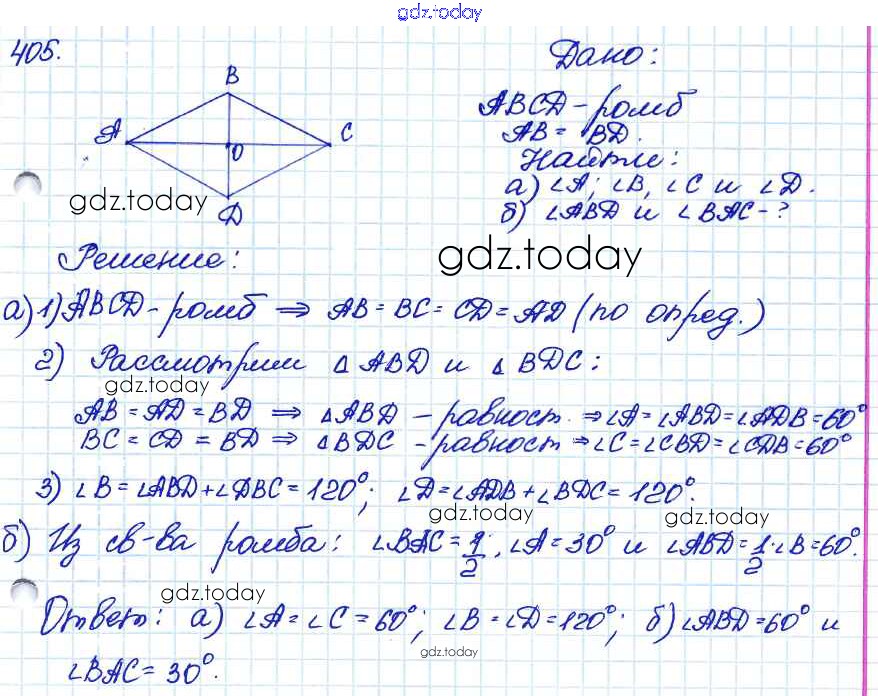 gdz.today
405.
Дано:
B
A
O
C
D
ABCD - ромб
AB = BD.
Найти:
а) ∠A; ∠B, ∠C и ∠D.
б) ∠ABD и ∠BAC - ?
gdz.today
gdz.today
Решение:
а) 1) ABCD - ромб ⇒ AB = BC = CD = AD (по опред.)
2) Рассмотрим △ABD и △BDC:
gdz.today
AB = AD = BD ⇒ △ABD - равност. ⇒ ∠A = ∠ABD = ∠ADB = 60°
BC = CD = BD ⇒ △BDC - равност ⇒ ∠C = ∠CBD = ∠CDB = 60°
3) ∠B = ∠ABD + ∠DBC = 120°; ∠D = ∠ADB + ∠BDC = 120°.
gdz.today
gdz.today
б) Из св-ва ромба: ∠BAC = 1/2 · ∠A = 30° и ∠ABD = 1/2 · ∠B = 60°.
gdz.today
Ответ: а) ∠A = ∠C = 60°; ∠B = ∠D = 120°; б) ∠ABD = 60° и
gdz.today
∠BAC = 30°.